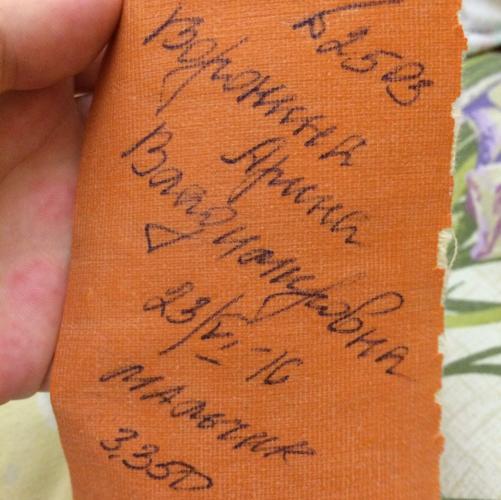 Б2503
Воронина
Арина
Владимировна
23/VI-16
мальчик
3,350